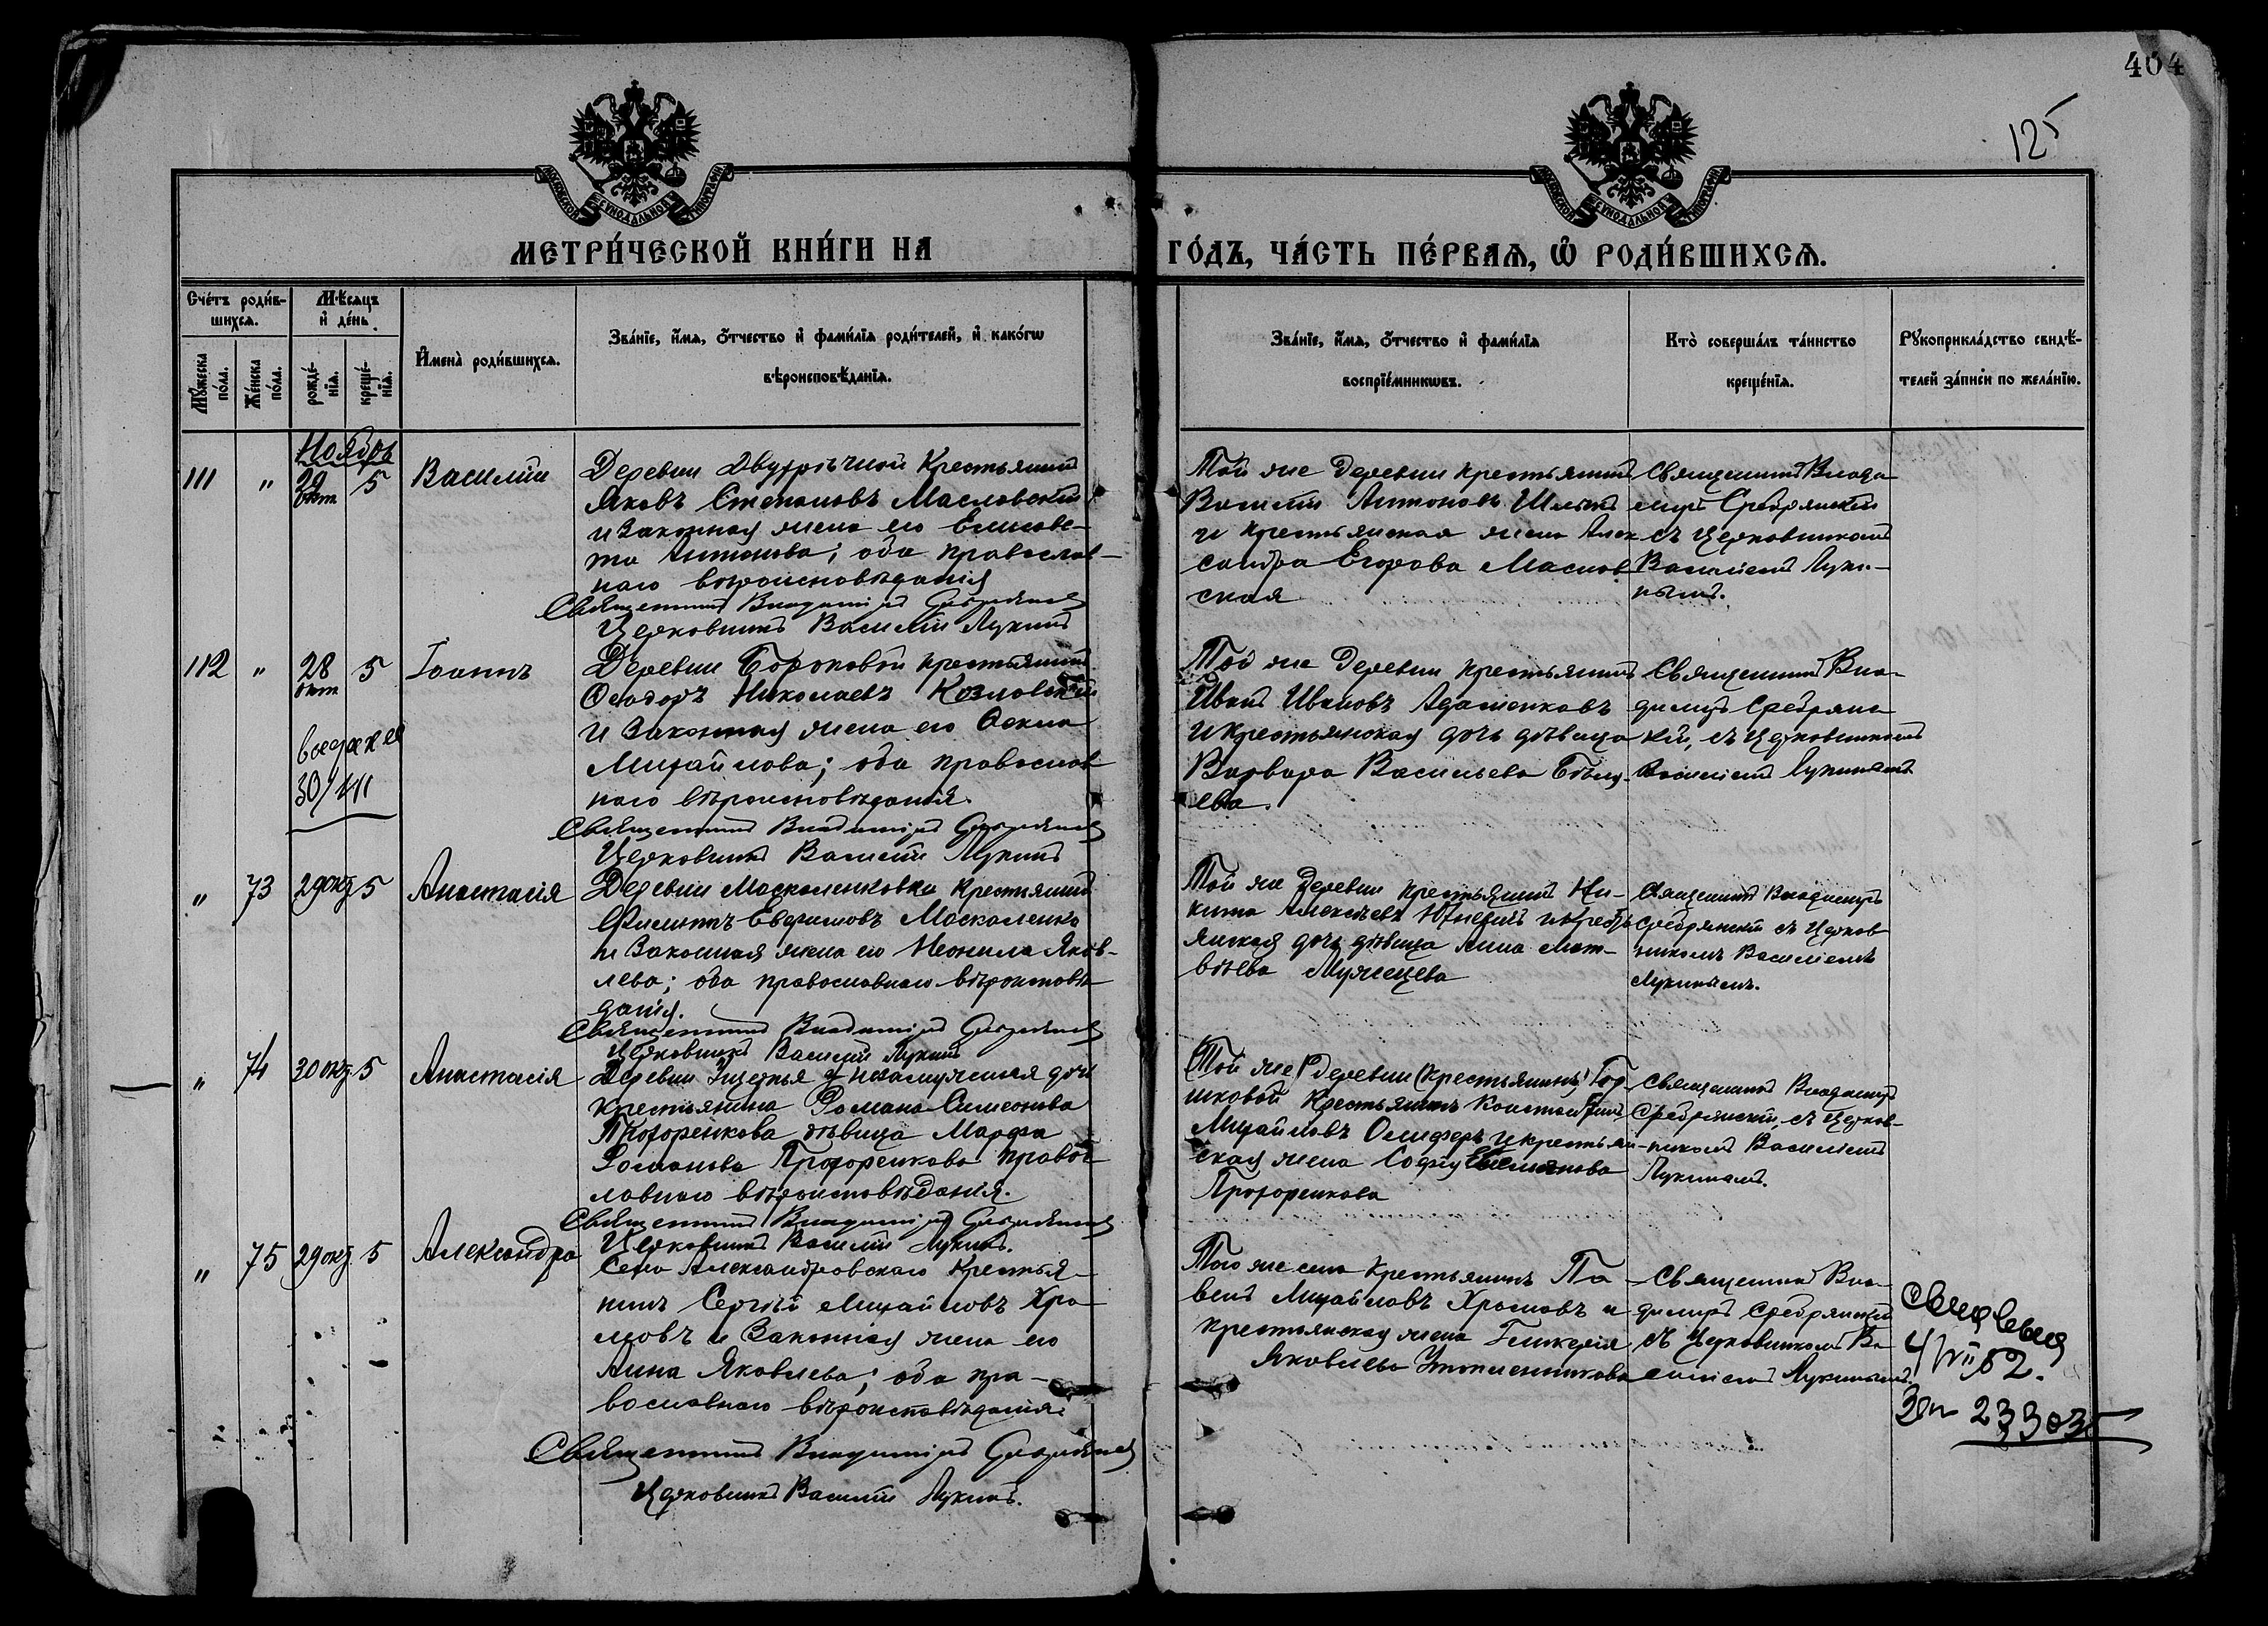 404
125
МЕТРИ́ЧЕСКОЙ КНИ́ГИ НА ГО́ДЪ, ЧА́СТЬ ПЕ́РВАѦ, Ѡ РОДИ́ВШИХСѦ.
Сче́тъ роди́в-
шихсѧ.
Мѣ́сѧцъ
и҆ де́нь
Мꙋ́жеска
по́ла.
Же́нска
по́ла.
рожде́-
нїѧ.
креще́-
нїѧ.
И҆мена̀ роди́вшихсѧ.
Зва́нїе, и҆́мѧ, ѻ҆́тчество и҆ фами́лїѧ роди́телей, и҆ како́гѡ
вѣроисповѣ́данїѧ.
Зва́нїе, и҆́мѧ, ѻ҆́тчество и҆ фами́лїѧ
воспрїе́мникѡвъ.
Кто̀ соверша́лъ та́инство
креще́нїѧ.
Рꙋкоприкла́дство свидѣ́-
телей за́писи по жела́нїю.
Ноябрь
111 " 29 окт 5 Василій
Деревни Двухрѣчной крестьянинъ
Яковъ Степановъ Масловскій
и законная жена его Елисаве-
та Антонова; оба православ-
наго вѣроисповѣданія
Священникъ Владиміръ Сребрянскій
Церковникъ Василій Лукинъ
Той же деревни крестьянинъ
Василій Антоновъ
и крестьянская жена Алек
сандра Егорова Маслов
ская
Священникъ Влади-
миръ Сребрянскій
съ церковникомъ
Василіемъ Луки-
нымъ.
112 " 28 окт 5 Іоаннъ
выдана
Деревни Боровковой крестьянинъ
Ѳеодоръ Николаевъ Козловскій
и законная жена его Ѳекла
Михайлова; оба православ
наго вѣроисповѣданія.
Священникъ Владиміръ Сребрянскій
Церковникъ Василій Лукинъ
Той же деревни крестьянинъ
Иванъ Ивановъ Адаменковъ
и крестьянская дочь дѣвица
Варвара Васильева
ева.
Священникъ Вла-
димиръ Сребрянс
кій, съ церковникомъ
Василіемъ Лукинымъ
" 73 29 окт 5 Анастасія
Деревни Москаленковки крестьянинъ
Филиппъ Евфимовъ Москаленко
и законная жена его Неонила Яков-
лева; оба православнаго вѣроисповѣ
данія.
Священникъ Владиміръ Сребрянскій
Церковникъ Василій Лукинъ
Той же деревни крестьянинъ Ни-
кита Алексѣевъ и кресть
янская дочь дѣвица Анна Мат-
вѣева Мужецева
Священникъ Владимиръ
Сребрянскій съ церков
никомъ Василіемъ
Лукинымъ.
" 74 30 окт 5 Анастасія
Деревни незамужняя дочь
крестьянина Романа Симеонова
Прохоренкова дѣвица Марфа
Романова Прохоренкова правос
лавнаго вѣроисповѣданія.
Священникъ Владиміръ Сребрянскій
Церковникъ Василій Лукинъ.
Той же деревни (крестьянинъ) Гор
шковой крестьянинъ Константинъ
Михайловъ Олиферъ и крестьян
ская жена Софія Емельянова
Прохоренкова
Священникъ Владимиръ
Сребрянскій, съ церков-
никомъ Василіемъ
Лукинымъ.
" 75 29 окт 5 Александра
Села Александровскаго крестья-
нинъ Сергѣй Михайловъ Хра
мовъ и законная жена его
Анна Яковлева; оба пра-
вославнаго вѣроисповѣданія.
Священникъ Владиміръ Сребрянскій
Церковникъ Василій Лукинъ.
Того же села крестьянинъ Па
велъ Михайловъ Храмовъ и
крестьянская жена Гликерія
Яковлева Утопленникова
Священникъ Вла-
димиръ Сребрянскій
съ церковникомъ Ва
силіемъ Лукинымъ.
4/VII 62.
23303